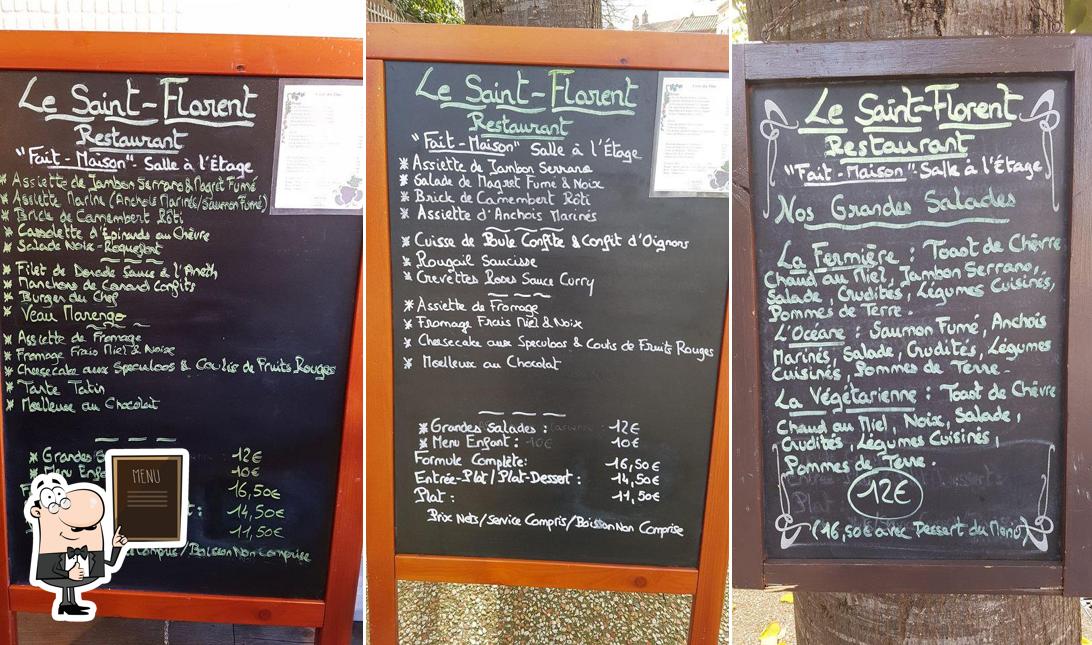 Le Saint-Florent
Restaurant
"Fait-Maison" Salle à l'Étage
* Assiette de Jambon Serrano & Magret Fumé
* Assiette Marine (Anchois Marinés/Saumon Fumé)
* Brick de Camembert Rôti
* Cassolette d'Epinards au Chèvre
* Salade Noix-Roquefort
* Filet de Dorade Sauce à l'Aneth
* Manchons de Canard Confits
* Burger du Chef
* Veau Marengo
* Assiette de Fromage
* Fromage Frais Miel & Noix
* Cheesecake aux Speculoos & Coulis de Fruits Rouges
* Tarte Tatin
* Moelleux au Chocolat
* Grandes 12€
* Menu Enfa 10€
16,50€
: 14,50€
11,50€
Compris/Boisson Non Comprise
MENU
Le Saint-Florent
Restaurant
"Fait-Maison" Salle à l'Étage
* Assiette de Jambon Serrano
* Salade de Magret Fumé & Noix
* Brick de Camembert Rôti
* Assiette d'Anchois Marinés
* Cuisse de Poule Confite & Confit d'Oignons
* Rougail Saucisse
* Crevettes Roses Sauce Curry
* Assiette de Fromage
* Fromage Frais Miel & Noix
* Cheesecake aux Speculoos & Coulis de Fruits Rouges
* Moelleux au Chocolat
* Grandes Salades : 12€
* Menu Enfant : 10€ 10€
Formule Complète: 16,50€
Entrée-Plat/Plat-Dessert : 14,50€
Plat : 11,50€
Prix Nets/Service Compris/Boisson Non Comprise
Le Saint-Florent
Restaurant
"Fait-Maison" Salle à l'Étage
Nos Grandes Salades
La Fermière : Toast de Chèvre
Chaud au Miel, Jambon Serrano,
Salade, Crudités, Légumes Cuisinés,
Pommes de Terre.
L'Océane : Saumon Fumé, Anchois
Marinés, Salade, Crudités, Légumes
Cuisinés, Pommes de Terre.
La Végétarienne : Toast de Chèvre
Chaud au Miel, Noix, Salade,
Crudités, Légumes Cuisinés,
Pommes de Terre.
12€
(16,50€ avec Dessert du Menu)